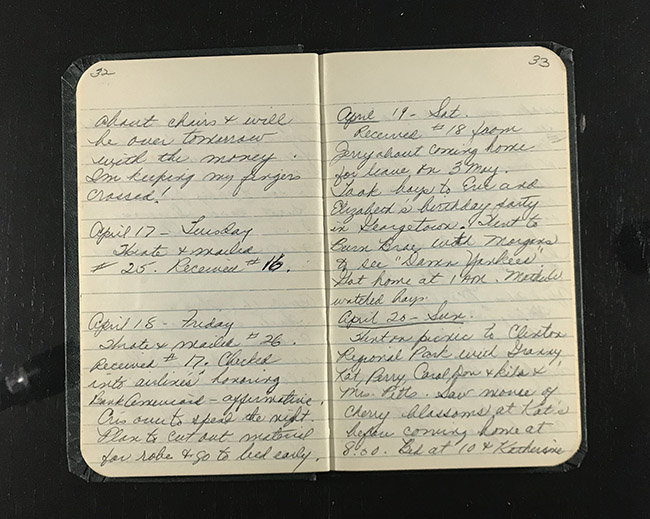 32
about chairs & will
be over tomorrow
with the money.
I'm keeping my fingers
crossed!
April 17 - Tuesday
Wrote & mailed
# 25. Received # 16.
April 18 - Friday
Wrote & mailed # 26.
Received # 17. Checked
into airlines' honoring
BankAmericard - affirmative.
Cris over to spend the night.
Plan to cut out material
for robe & go to bed early.
33
April 19 - Sat.
Received # 18 from
Jerry about coming home
for leave on 3 May.
Took boys to Eric and
Elizabeth's birthday party
in Georgetown. Went to
Burn Brae with Morgans
to see "Damn Yankees".
Got home at 1 AM.
watched boys.
April 20 - Sun.
Went on picnic to Clinton
Regional Park with Granny,
Kat, Perry, Carol & kids &
Mrs. Pitts. Saw movie of
cherry blossoms at Kat's
before coming home at
8:00. Bed at 10 & Katherine